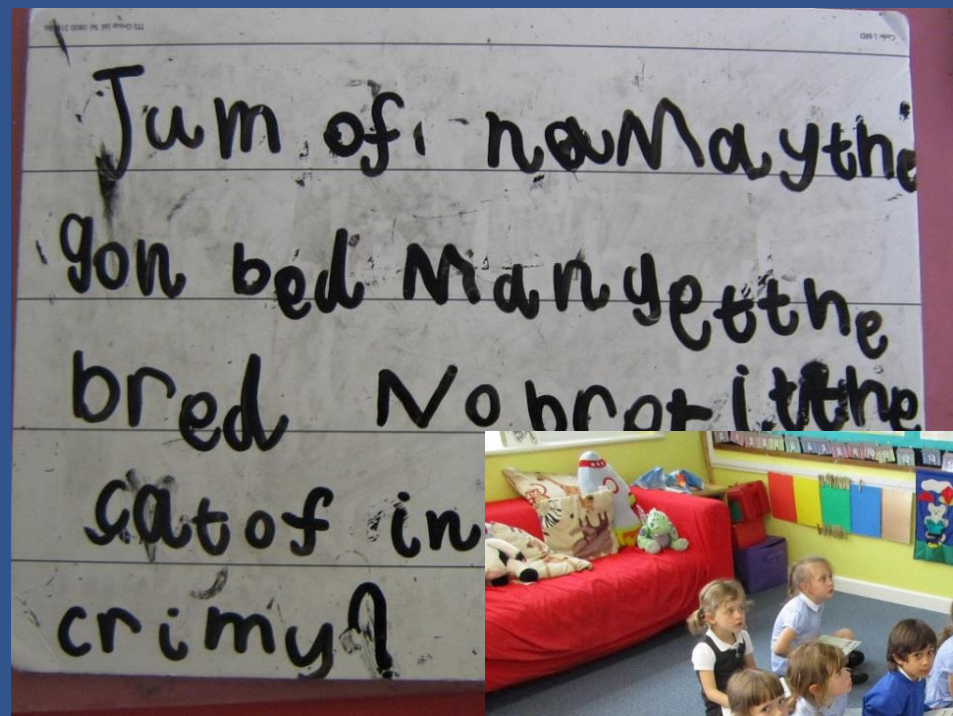 Jum of naMaythe
gon bed Mangetthe
bred No brot itthe
catof in
crimy